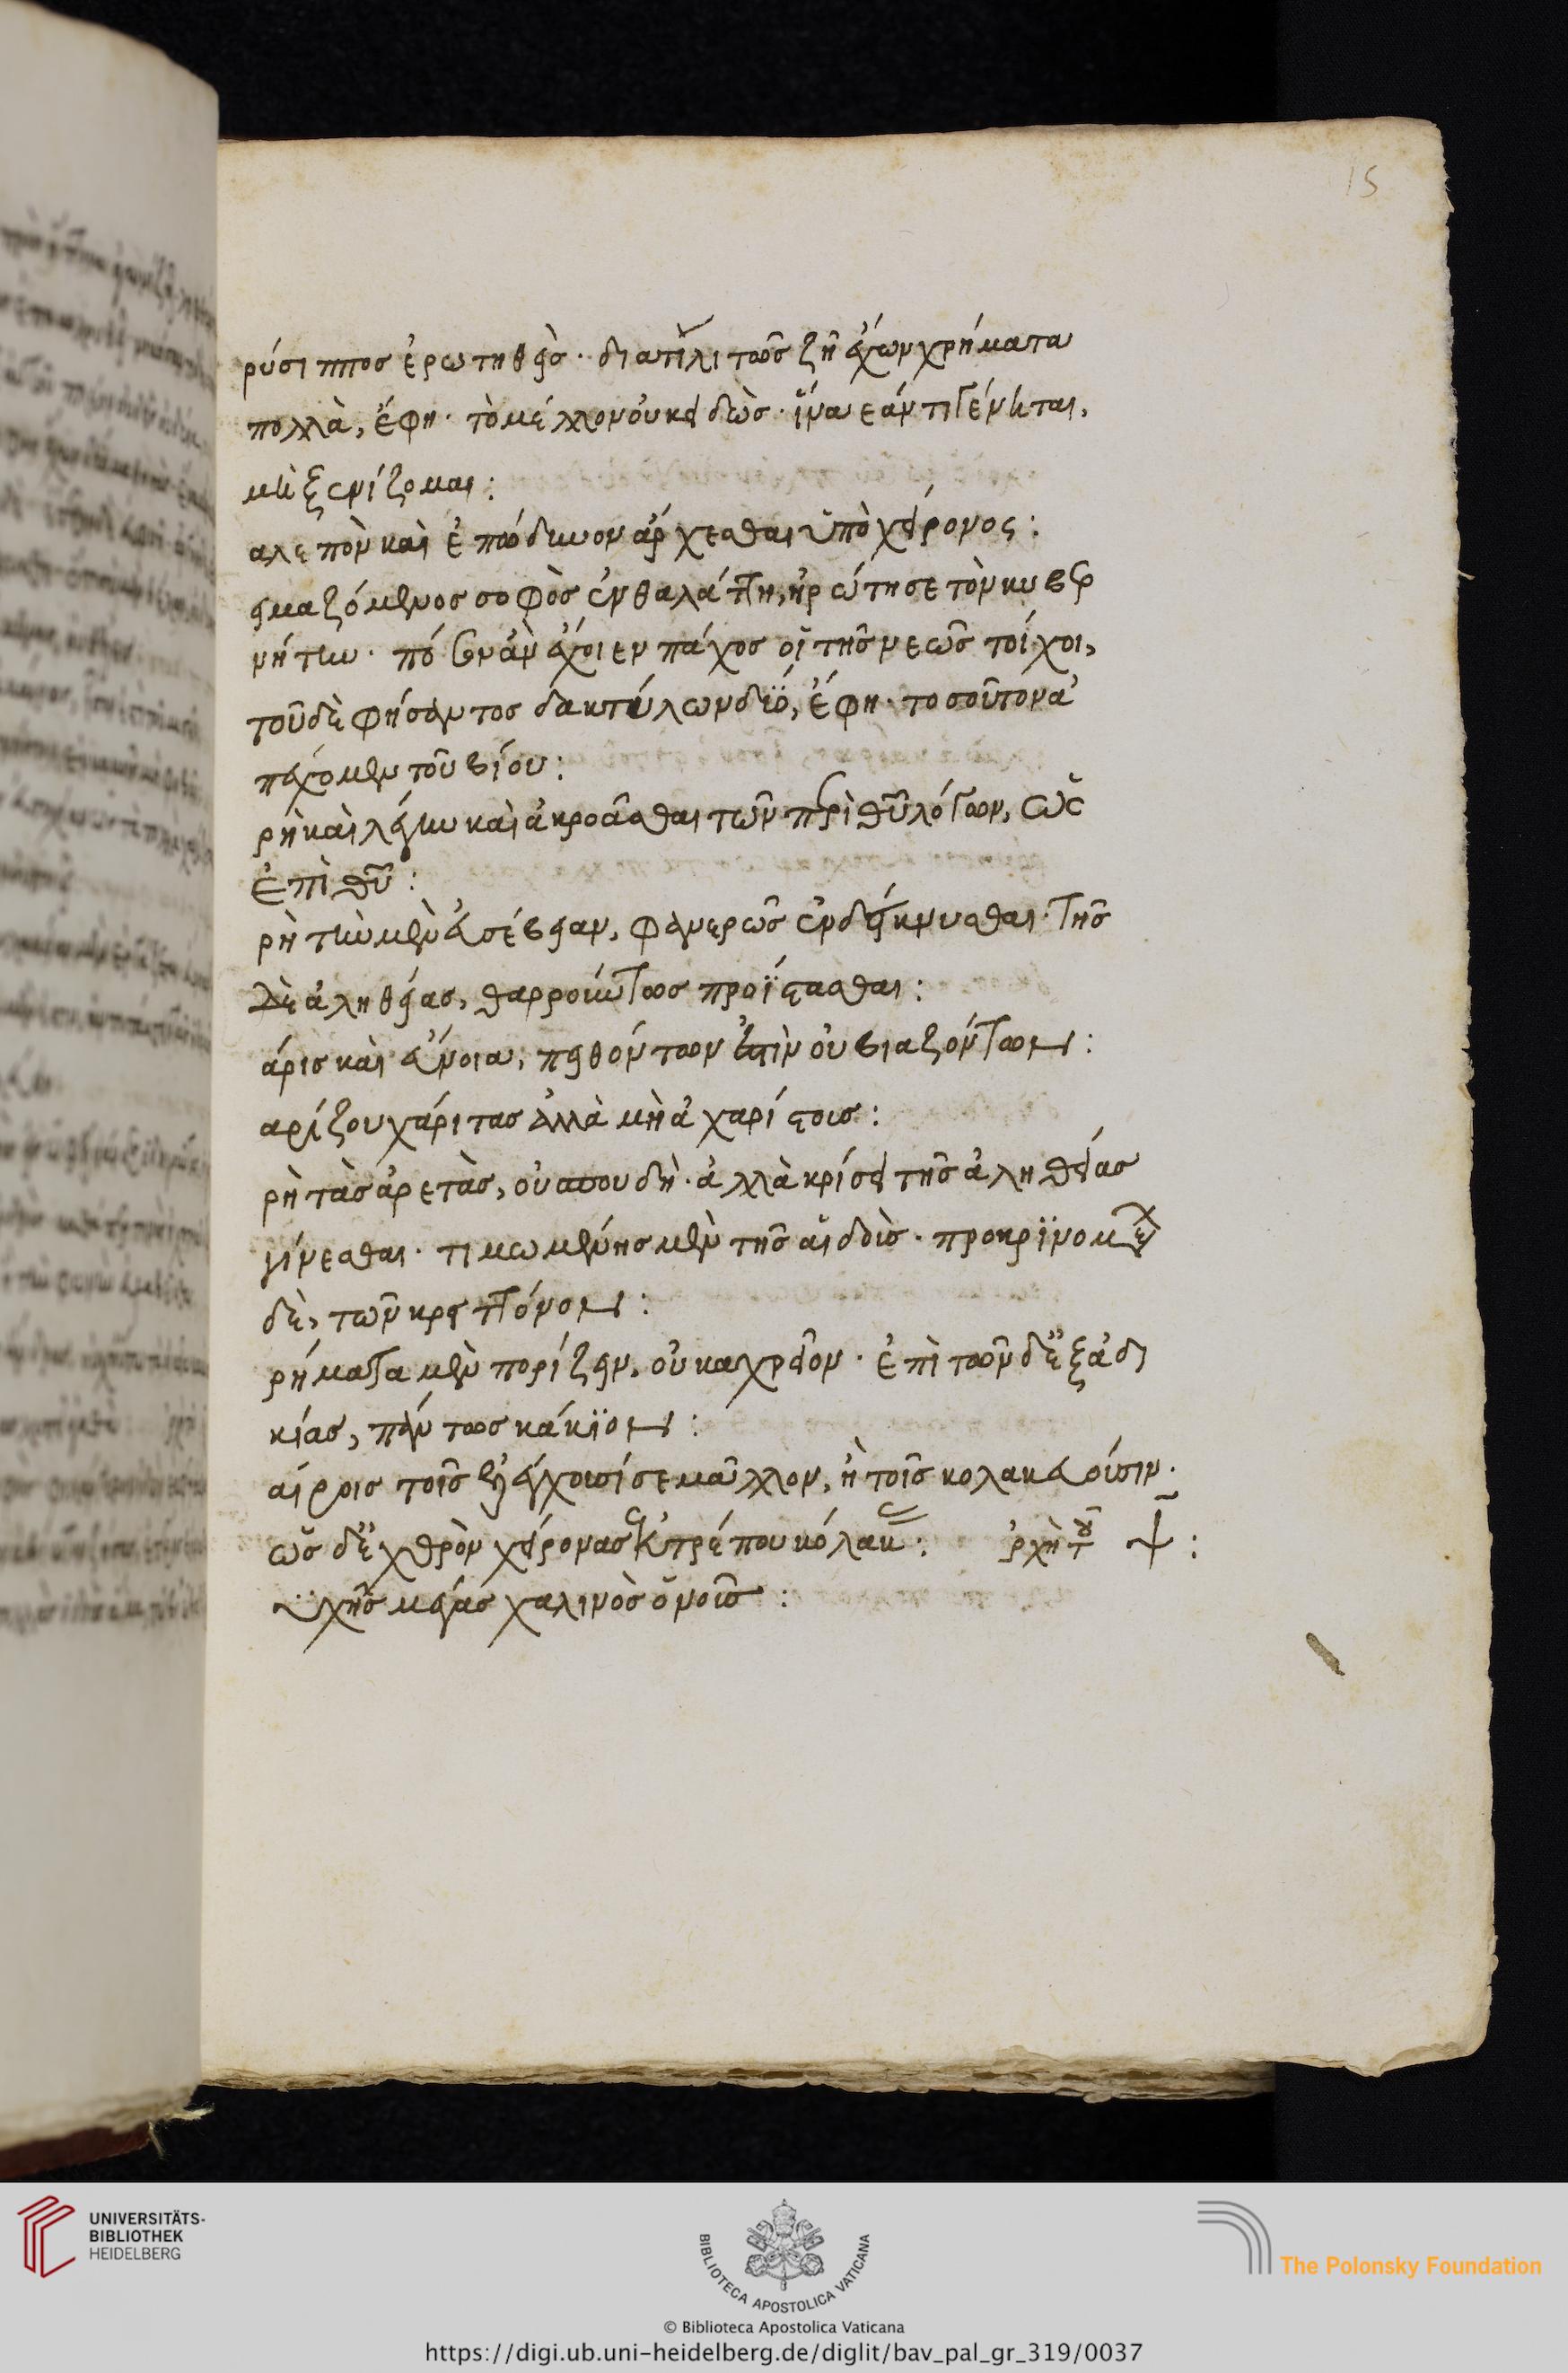 15
ρύσιππος ἐρωτηθεὶς· διατὶ λιτῶς ζῆ ἔχων χρήματα
πολλὰ, ἔφη· τὸ μέλλον οὐκ εἰδὼς· ἵνα ἐάν τι γένηται,
μὴ ξενίζομαι:
αλεπὸν καὶ ἐπώδυνον ἄρχεσθαι ὑπὸ χείρονος:
ειμαζόμενος σοφὸς ἐν θαλάττη, ἠρώτησε τὸν κυβερ
νήτην· πόσον ἂν ἔχοιεν πάχος οἱ τῆς νεὼς τοίχοι,
τοῦ δὲ φήσαντος δακτύλων δύο, ἔφη· τοσοῦτον ἀ
πέχομεν τοῦ βίου:
ρὴ καὶ λέγειν καὶ ἀκροᾶσθαι τῶν περὶ θυ λόγων, ὡς
ἐπὶ θυ:
ρὴ τὴν μὲν εὐσέβειαν, φανερῶς ἐνδείκνυσθαι· τῆς
δὲ ἀληθείας, θαρρούντως προΐστασθαι:
άρις καὶ εὔνοια, πειθόντων ἐστὶν οὐ βιαζόντων:
αρίζου χάριτας ἀλλὰ μὴ ἀχαρίστοις:
ρὴ τὰς ἀρετὰς, οὐ σπουδὴ· ἀλλὰ κρίσει τῆς ἀληθείας
γίνεσθαι· τιμωμένης μὲν τῆς αἰδοῦς· προκρινομένων
δὲ, τῶν κρειττόνων:
ρήματα μὲν πορίζειν, οὐκ ἀχρεῖον· ἐπὶ τῶν δὲ ἐξ ἀδι
κίας, πάντως κάκϊον:
αίροις τοῖς ἐλέγχουσί σε μᾶλλον, ἢ τοῖς κολακεύουσιν·
ὡς δ' ἐχθρὸν χείρονας ἐκτρέπου κόλακας: ἀρχὴ τοῦ ψ:
υχῆς μέγας χαλινὸς ὁ νοῦς:
UNIVERSITÄTS-
BIBLIOTHEK
HEIDELBERG
BIBLIOTECA APOSTOLICA VATICANA
The Polonsky Foundation
© Biblioteca Apostolica Vaticana
https://digi.ub.uni-heidelberg.de/diglit/bav_pal_gr_319/0037